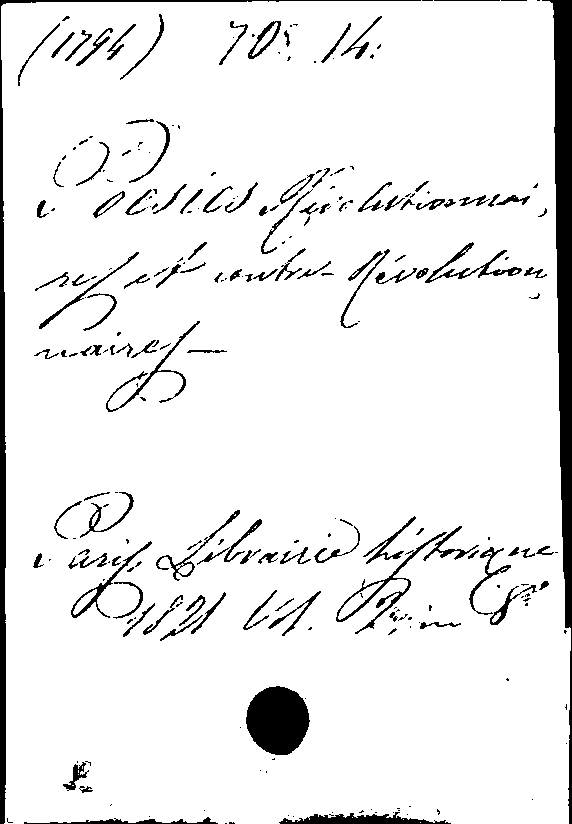 (1794) 70ˢ. 14:
Poesies Révolutionnai,
res et contre-Révolution,
naires —
Paris, Librairie historique
1821 Vol. 2 in 8º